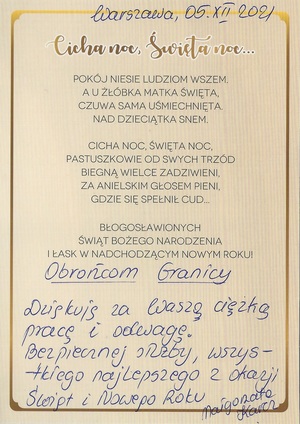 Warszawa, 05.XII 2021
Cicha noc, Święta noc...
POKÓJ NIESIE LUDZIOM WSZEM.
A U ŻŁÓBKA MATKA ŚWIĘTA,
CZUWA SAMA UŚMIECHNIĘTA.
NAD DZIECIĄTKA SNEM.
CICHA NOC, ŚWIĘTA NOC,
PASTUSZKOWIE OD SWYCH TRZÓD
BIEGNĄ WIELCE ZADZIWIENI,
ZA ANIELSKIM GŁOSEM PIENI,
GDZIE SIĘ SPEŁNIŁ CUD...
BŁOGOSŁAWIONYCH
ŚWIĄT BOŻEGO NARODZENIA
I ŁASK W NADCHODZĄCYM NOWYM ROKU!
Obrońcom Granicy
Dziękuję za Waszą ciężką
pracę i odwagę.
Bezpiecznej służby, wszys-
tkiego najlepszego z okazji
Świąt i Nowego Roku
Małgorzata